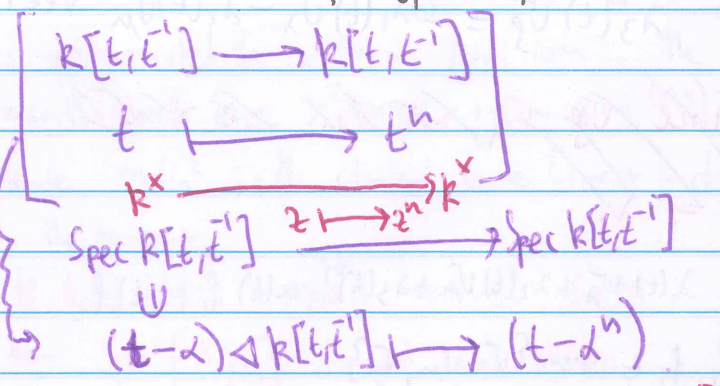 k[t,t⁻¹] ⟶ k[t,t⁻¹]
t ⟼ tⁿ
k^× ⟶ k^×
z ⟼ zⁿ
Spec k[t,t⁻¹] ⟶ Spec k[t,t⁻¹]
∪
(t-α) ◁ k[t,t⁻¹] ⟼ (t-αⁿ)